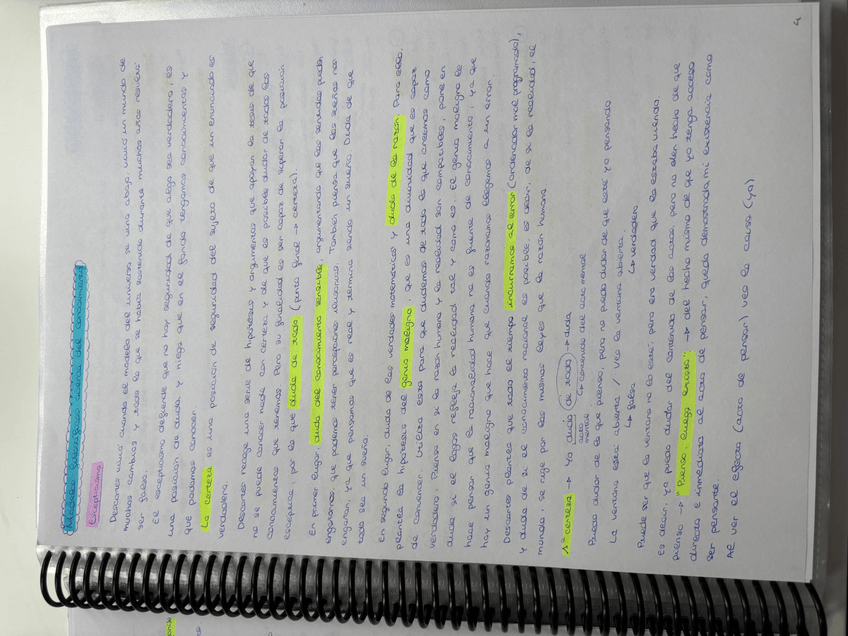 Modelos filosóficos acerca del conocimiento
Escepticismo
Descartes nació cuando el modelo del universo se vino abajo, nació un mundo de
muchos cambios y todo lo que se había sostenido durante muchos años resultó
ser falso.
El escepticismo defiende que no hay seguridad de que algo sea verdadero, es
una posición de duda y niega que en el fondo tengamos conocimientos y
que podamos conocer.
La certeza es una posición de seguridad del sujeto de que un enunciado es
verdadero.
Descartes recoge una serie de hipótesis y argumentos que apoyan la tesis de que
no se puede conocer nada con certeza y de que es posible dudar de todos los
conocimientos que tenemos. Pero su finalidad es ser capaz de superar la posición
escéptica, por lo que duda de todo (punto final → certeza).
En primer lugar, duda del conocimiento sensible, argumentando que los sentidos pueden
engañarnos, que podemos tener percepciones ilusorias. También piensa que los sueños nos
engañan, ya que pensamos que es real y termina siendo un sueño. Duda de que
todo sea un sueño.
En segundo lugar, duda de las verdades matemáticas y duda de la razón. Para ello,
plantea la hipótesis del genio maligno, que es una divinidad que es capaz
de convencer. Utiliza esto para que dudemos de todo lo que creemos como
verdadero. Piensa en si la razón humana y la realidad son compatibles, pone en
duda si el logos refleja la realidad tal y como es. El genio maligno le
hace pensar que la racionalidad humana no es fuente de conocimiento, ya que
hay un genio maligno que hace que cuando razonamos lleguemos a un error.
Descartes plantea que todo el tiempo incurramos al error (ordenador mal programado),
y duda de si el conocimiento racional es posible, es decir, de si la realidad, el
mundo, se rige por las mismas leyes que la razón humana.
1ª certeza → Yo dudo de todo → duda
acto mental
↳ contenido del acto mental
Puedo dudar de lo que pienso, pero no puedo dudar de que esté yo pensando
La ventana está abierta / Veo la ventana abierta.
↳ falsa ↳ verdadera
Puede ser que la ventana no lo esté, pero era verdad que la estaba viendo.
Es decir, yo puedo dudar del contenido de los actos, pero no del hecho de que
pienso → "Pienso, luego existo" → del hecho mismo de que yo tenga acceso
directo e inmediato al acto de pensar, queda demostrada mi existencia como
ser pensante.
Al ver el efecto (acto de pensar) veo la causa (yo)
4